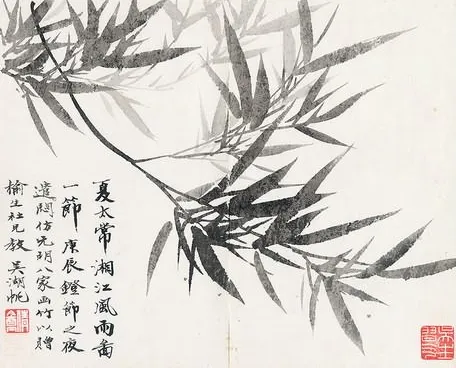 夏太常湘江風雨啚
一節庚辰鐙節之夜
遣悶仿元明八家画竹以贈
榆生社兄教吳湖帆